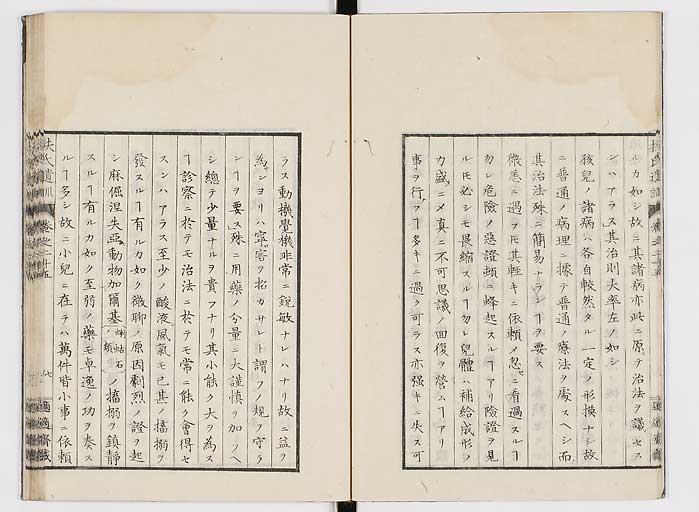 ルカ如シ故ニ其諸病亦此ニ原テ治法ヲ議セス
ンハアラス其治則大率左ノ如シ
孩兒ノ諸病ハ各自較然タル一定ノ形摸ナシ故
ニ普通ノ病理ニ據テ普通ノ療法ヲ處スヘシ而
其治法殊ニ簡易ナランヿヲ要ス
微恙ニ遇フ𪜈其輕キニ依頼メ忽ニ看過スルヿ
勿レ危險ノ惡證頓ニ蜂起スルヿアリ險證ヲ見
ル𪜈必シモ畏縮スルヿ勿レ兒體ハ補給成形ノ
力盛ニメ真ニ不可思議ノ回復ヲ營ムヿアリ
事ヲ行フヿ多キニ過ク可ラス亦强キニ失ス可
ラス動撓覺機非常ニ鋭敏ナレハナリ故ニ益ヲ
為ンヨリハ寧害ヲ招カサレト謂フノ規ヲ守ラ
ンヿヲ要ス殊ニ用藥ノ分量ニ大謹慎ヲ加フヘ
シ總テ少量ナルヲ貴フナリ其小能ク大ヲ為ス
ヿ診察ニ於テモ治法ニ於テモ常ニ能ク會得セ
スンハアラス至少ノ酸液風氣モ已ニ其ノ搐搦ヲ
發スルヿ有ルカ如ク微聊ノ原因劇烈ノ證ヲ起
シ麻倔涅失亞動物加爾基蜊蛄石ノ類ノ搐搦ヲ鎮靜
スルヿ有ルカ如ク至弱ノ藥モ卓逸ノ功ヲ奏ス
ルヿ多シ故ニ小兒ニ在テハ萬件皆小事ニ依頼
扶氏遺訓 卷之二十五
適適齋藏